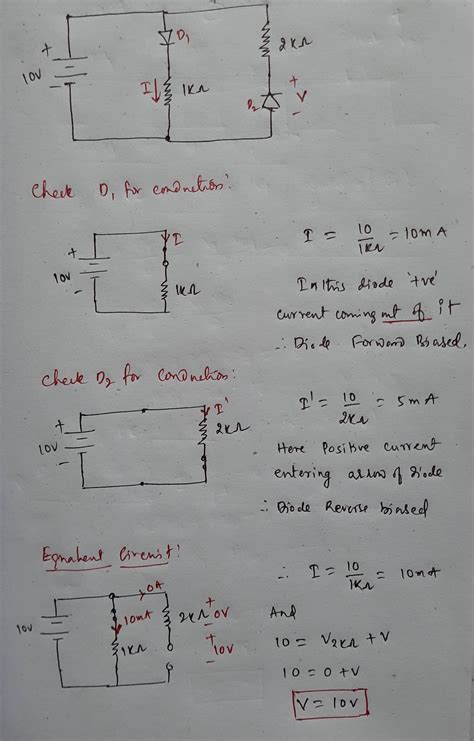 +
10V
-
D1
I
1kΩ
2kΩ
+
V
-
D2
Check D1 for conduction:
+
10V
-
I
1kΩ
I = 10/1kΩ = 10mA
In this diode '+ve'
current coming out of it
∴ Diode Forward Biased.
Check D2 for conduction:
+
10V
-
I'
2kΩ
I' = 10/2kΩ = 5mA
Here Positive current
entering arrow of diode
∴ Diode Reverse biased
Equivalent Circuit:
+
10V
-
0A
10mA
1kΩ
2kΩ
+
0V
-
+
10V
-
∴ I = 10/1kΩ = 10mA
And
10 = V2kΩ + V
10 = 0 + V
V = 10V